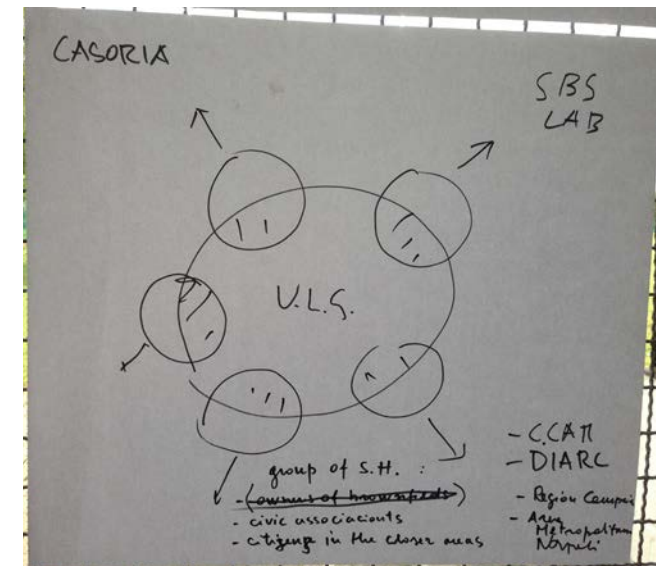 CASORIA
SBS
LAB
U.L.G.
group of S.H. :
- (owners of brownfields)
- civic associacionts
- citizens in the closer areas
- C.CAM
- DIARC
- Region Campai
- Area
Metropolitan
Napoli